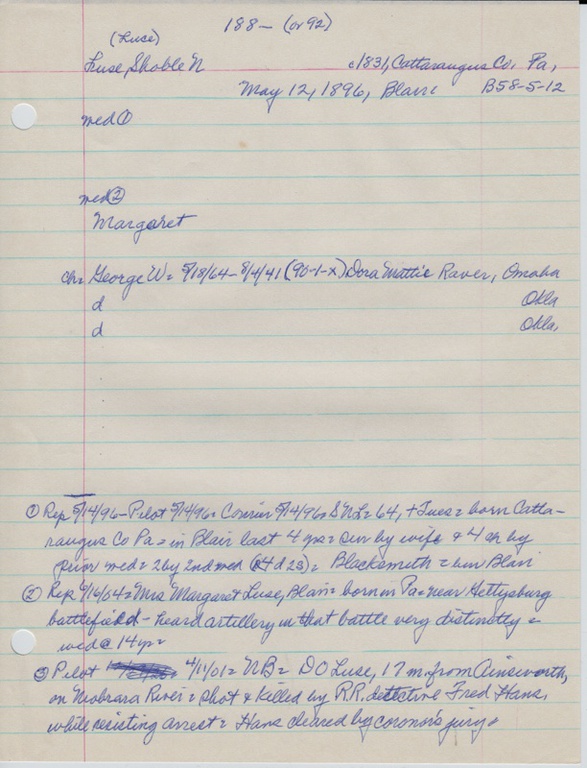 188- (or 92)
(Luse)
Luse, Shoble N c1831, Cattaraugus Co. Pa,
May 12, 1896, Blair: B58-5-12
med ①
med ②
Margaret
ch= George W= 5/18/64-8/4/41 (90-1-x) Dora Mattie Raver, Omaha
d Okla
d Okla,
① Rep 5/14/96- Pilot 5/14/96= Courier 5/14/96= S N L= 64, + Tues = born Catta-
raugus Co Pa = in Blair last 4 yrs = sur by wife & 4 ch by
prior med = 2 by 2nd med (4 d 2s) = Blacksmith = bur Blair
② Rep 9/16/04= Mrs Margaret Luse, Blair= born in Pa= near Hettysburg
battlefield - heard artillery in that battle very distinctly =
wed @ 14 yr=
③ Pilot 4/11/01= NB= D O Luse, 17 m. from Ainsworth,
on Niobrara River = shot & killed by R.R. detective Fred Hans,
while resisting arrest = Hans cleared by coronor's jury =